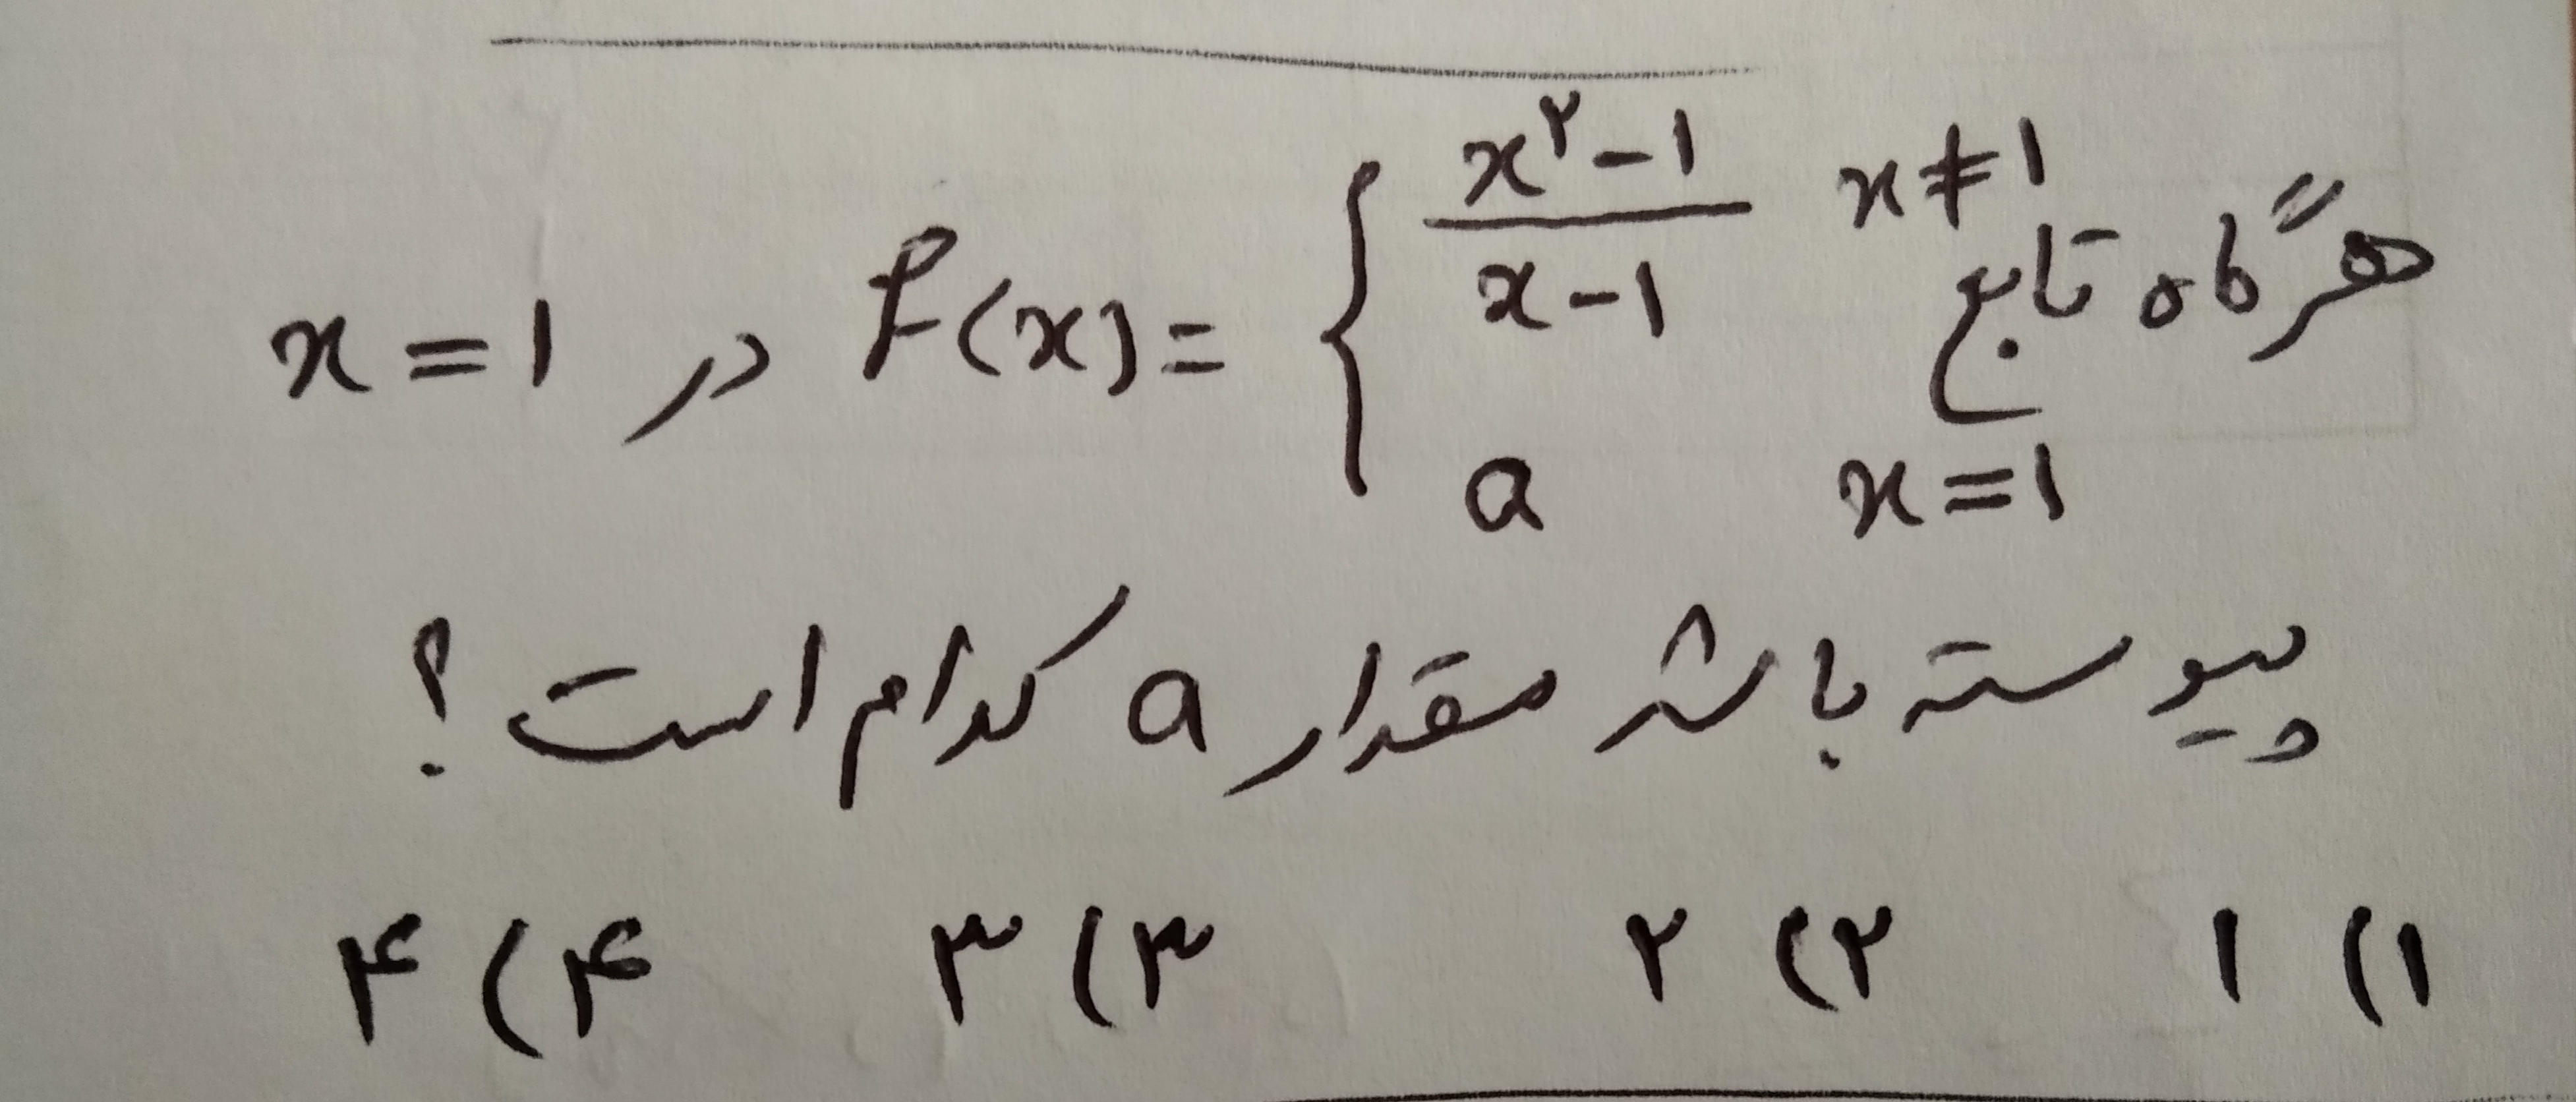 هرگاه تابع f(x) = { (x^۲ - ۱)/(x - ۱)  x ≠ ۱ ; a  x = ۱ در x = ۱
پیوسته باشد مقدار a کدام است؟
۱) ۱  ۲) ۲  ۳) ۳  ۴) ۴